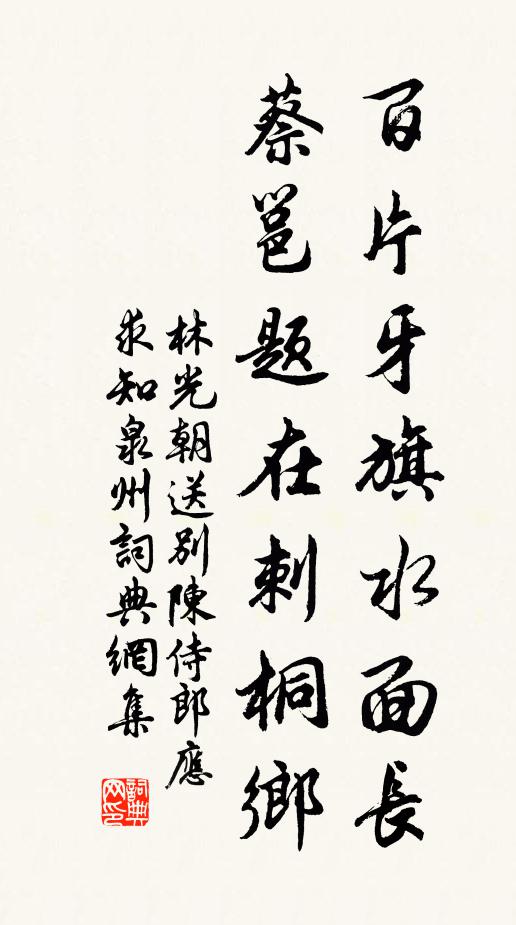 百片牙旗水面長
蔡邕題在刺桐鄉
林光朝送别陳侍郎應
求知泉州詞典網集
詞典网印